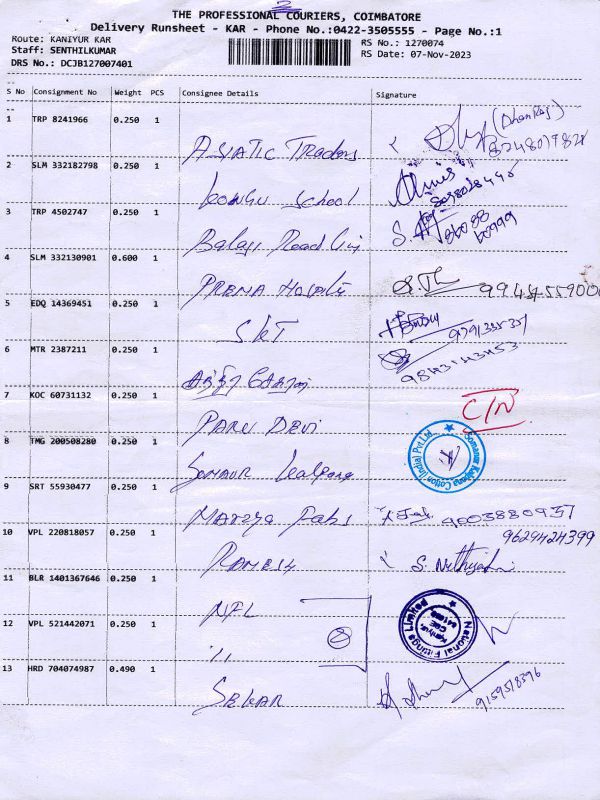 THE PROFESSIONAL COURIERS, COIMBATORE
Delivery Runsheet - KAR - Phone No.:0422-3505555 - Page No.:1
Route: KANIYUR KAR
Staff: SENTHILKUMAR
DRS No.: DCJB127007401
RS No.: 1270074
RS Date: 07-Nov-2023
S No Consignment No Weight PCS Consignee Details Signature
1 TRP 8241966 0.250 1
ASIATIC Traders
2 SLM 332182798 0.250 1
kongu school
3 TRP 4502747 0.250 1
Balaji
4 SLM 332130901 0.600 1
PRENA
5 EDQ 14369451 0.250 1
SKT
6 MTR 2387211 0.250 1
9843143453
7 KOC 60731132 0.250 1
PARU DEVI
C/N
8 TMG 200508280 0.250 1
Somanur Kalpana Cotton (India) Pvt.Ltd
9 SRT 55930477 0.250 1
Fabs
9003880937
10 VPL 220818057 0.250 1
RAMESH
9629424399
11 BLR 1401367646 0.250 1
NFL
12 VPL 521442071 0.250 1
,,
2
National Fittings Limited
13 HRD 704074987 0.490 1
SEKAR
9159518396